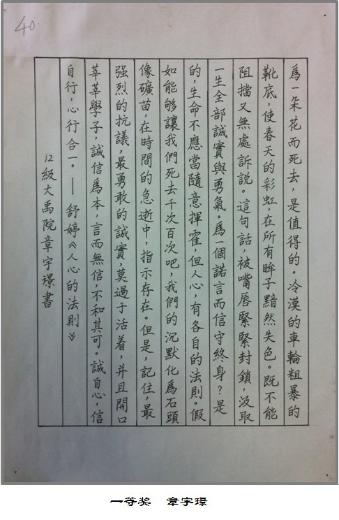 40
為一朵花而死去，是值得的。冷漠的車輪粗暴的
靴底，使春天的彩虹，在所有眸子黯然失色。既不能
阻擋又無處訴說。這句話，被嘴唇緊緊封鎖，汲取
一生全部誠實與勇氣。為一個諾言而信守終身？是
的，生命不應當隨意揮霍，但人心，有各自的法則。假
如能够讓我們死去千次百次吧，我們的沉默化為石頭
像礦苗，在時間的急逝中，指示存在。但是，記住，最
強烈的抗議，最勇敢的誠實，莫過于活着，并且開口
莘莘學子，誠信為本，言而無信，不知其可。誠自心，信
自行，心行合一。——舒婷《人心的法則》
12級大禹院章字璟書
一等奖 章字璟